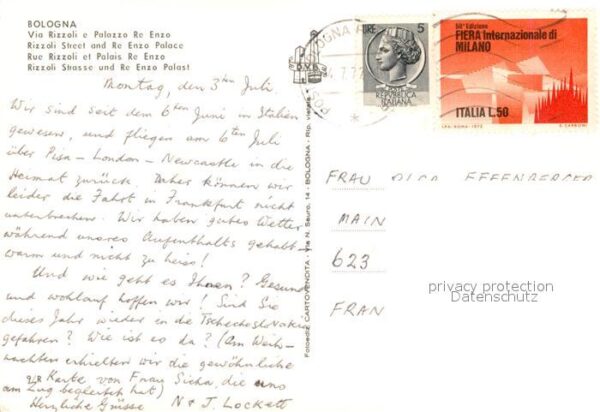 BOLOGNA
Via Rizzoli e Palazzo Re Enzo
Rizzoli Street and Re Enzo Palace
Rue Rizzoli et Palais Re Enzo
Rizzoli Strasse und Re Enzo Palast
Montag, den 3ten Juli
Wir sind seit dem 6ten Juni in Italien
gewesen, und fliegen am 6ten Juli
über Pisa - London - Newcastle in die
Heimat zurück. Daher können wir
leider die Fahrt in Frankfurt nicht
unterbrechen. Wir haben gutes Wetter
während unseres Aufenthalts gehabt,
warm und nicht zu heiss!
Und wie geht es Ihnen? Gesund
und wohlauf hoffen wir! Sind Sie
dieses Jahr wieder in die Tschechoslovakia
gefahren? Wie ist es da? (Am Weih-
nachten erhielten wir die gewöhnliche
Karte von Frau Sicha, die uns
am Zug begleitet hat)
Herzliche Grüsse N & J. Lockett
Fotoediz. CARTOVENDITA - Via N. Sauro, 14 - BOLOGNA - Rip. vietata
LIRE 5
REPUBBLICA
ITALIANA
50ª Edizione
FIERA Internazionale di
MILANO
ITALIA L.50
I.P.S.-ROMA-1972
FRAU OLGA EFFENBERGER
MAIN
623
FRAN
privacy protection
Datenschutz